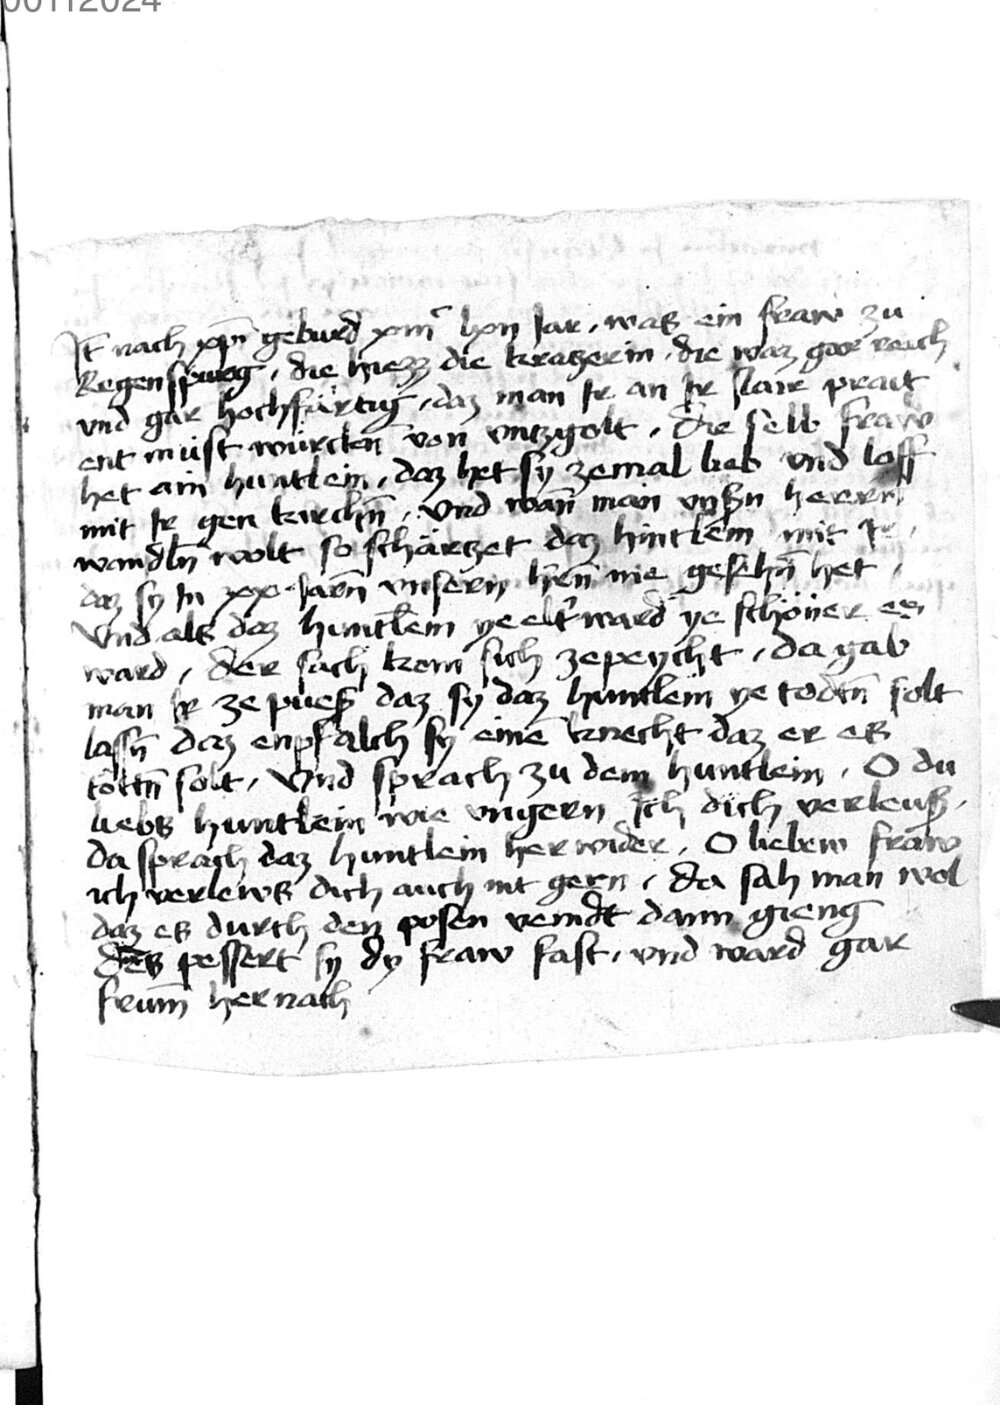 00112024
It nach xpi geburd xiiiͨ lxvi Jar, waß ein fraw zu
Regenspurg, die hiezz die kratzerin, die waz gar reich
vnd gar hochfärtig, daz man Ir an Ir slair prait
ent müst würcken von vntzgolt, die selb fraw
het ain huntlein, daz het sy zemal lieb vnd loff
mit Ir gen kirchn̄, vnd wan̄ man vnßn herrn
wandln̄ wolt so schärtzet daz hüntlein mit Ir,
daz sy In xx Jarn̄ vnsern hrn̄ nie gesehn̄ het,
Vnd als daz huntlein ye elt' ward ye schöner er
ward, der sach kom sich zepeycht, da gab
man Ir ze pueß daz sy daz huntlein ye todtn̄ solt
lassn̄ daz enpfalch sy eine knecht daz er eß
tottn̄ solt, Vnd sprach zu dem huntlein, O du
liebß huntlein wie vngern Ich dich verleuß,
da sprach daz huntlein her wider, O liebew fraw
ich verlewß dich auch nit gern, da sah man wol
daz eß durch den posen veindt dann gieng
deß pessert sy dy fraw fast, vnd ward gar
frum̄ hernach